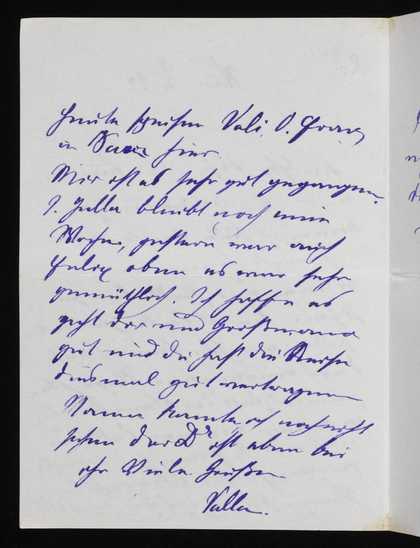 Heute speisen Vali, O. Franz
u. hier.
Mir ist es sehr gut gegangen.
T. Julla bleibt noch eine
Woche, gestern war auch
Felix oben es war sehr
gemüthlich. Ich hoffe es
geht dir und Großmama
gut und du hast die Reise
diesmal gut vertragen
Mama konnte ich noch nicht
sehen der Dr ist eben bei
ihr Viele Grüße